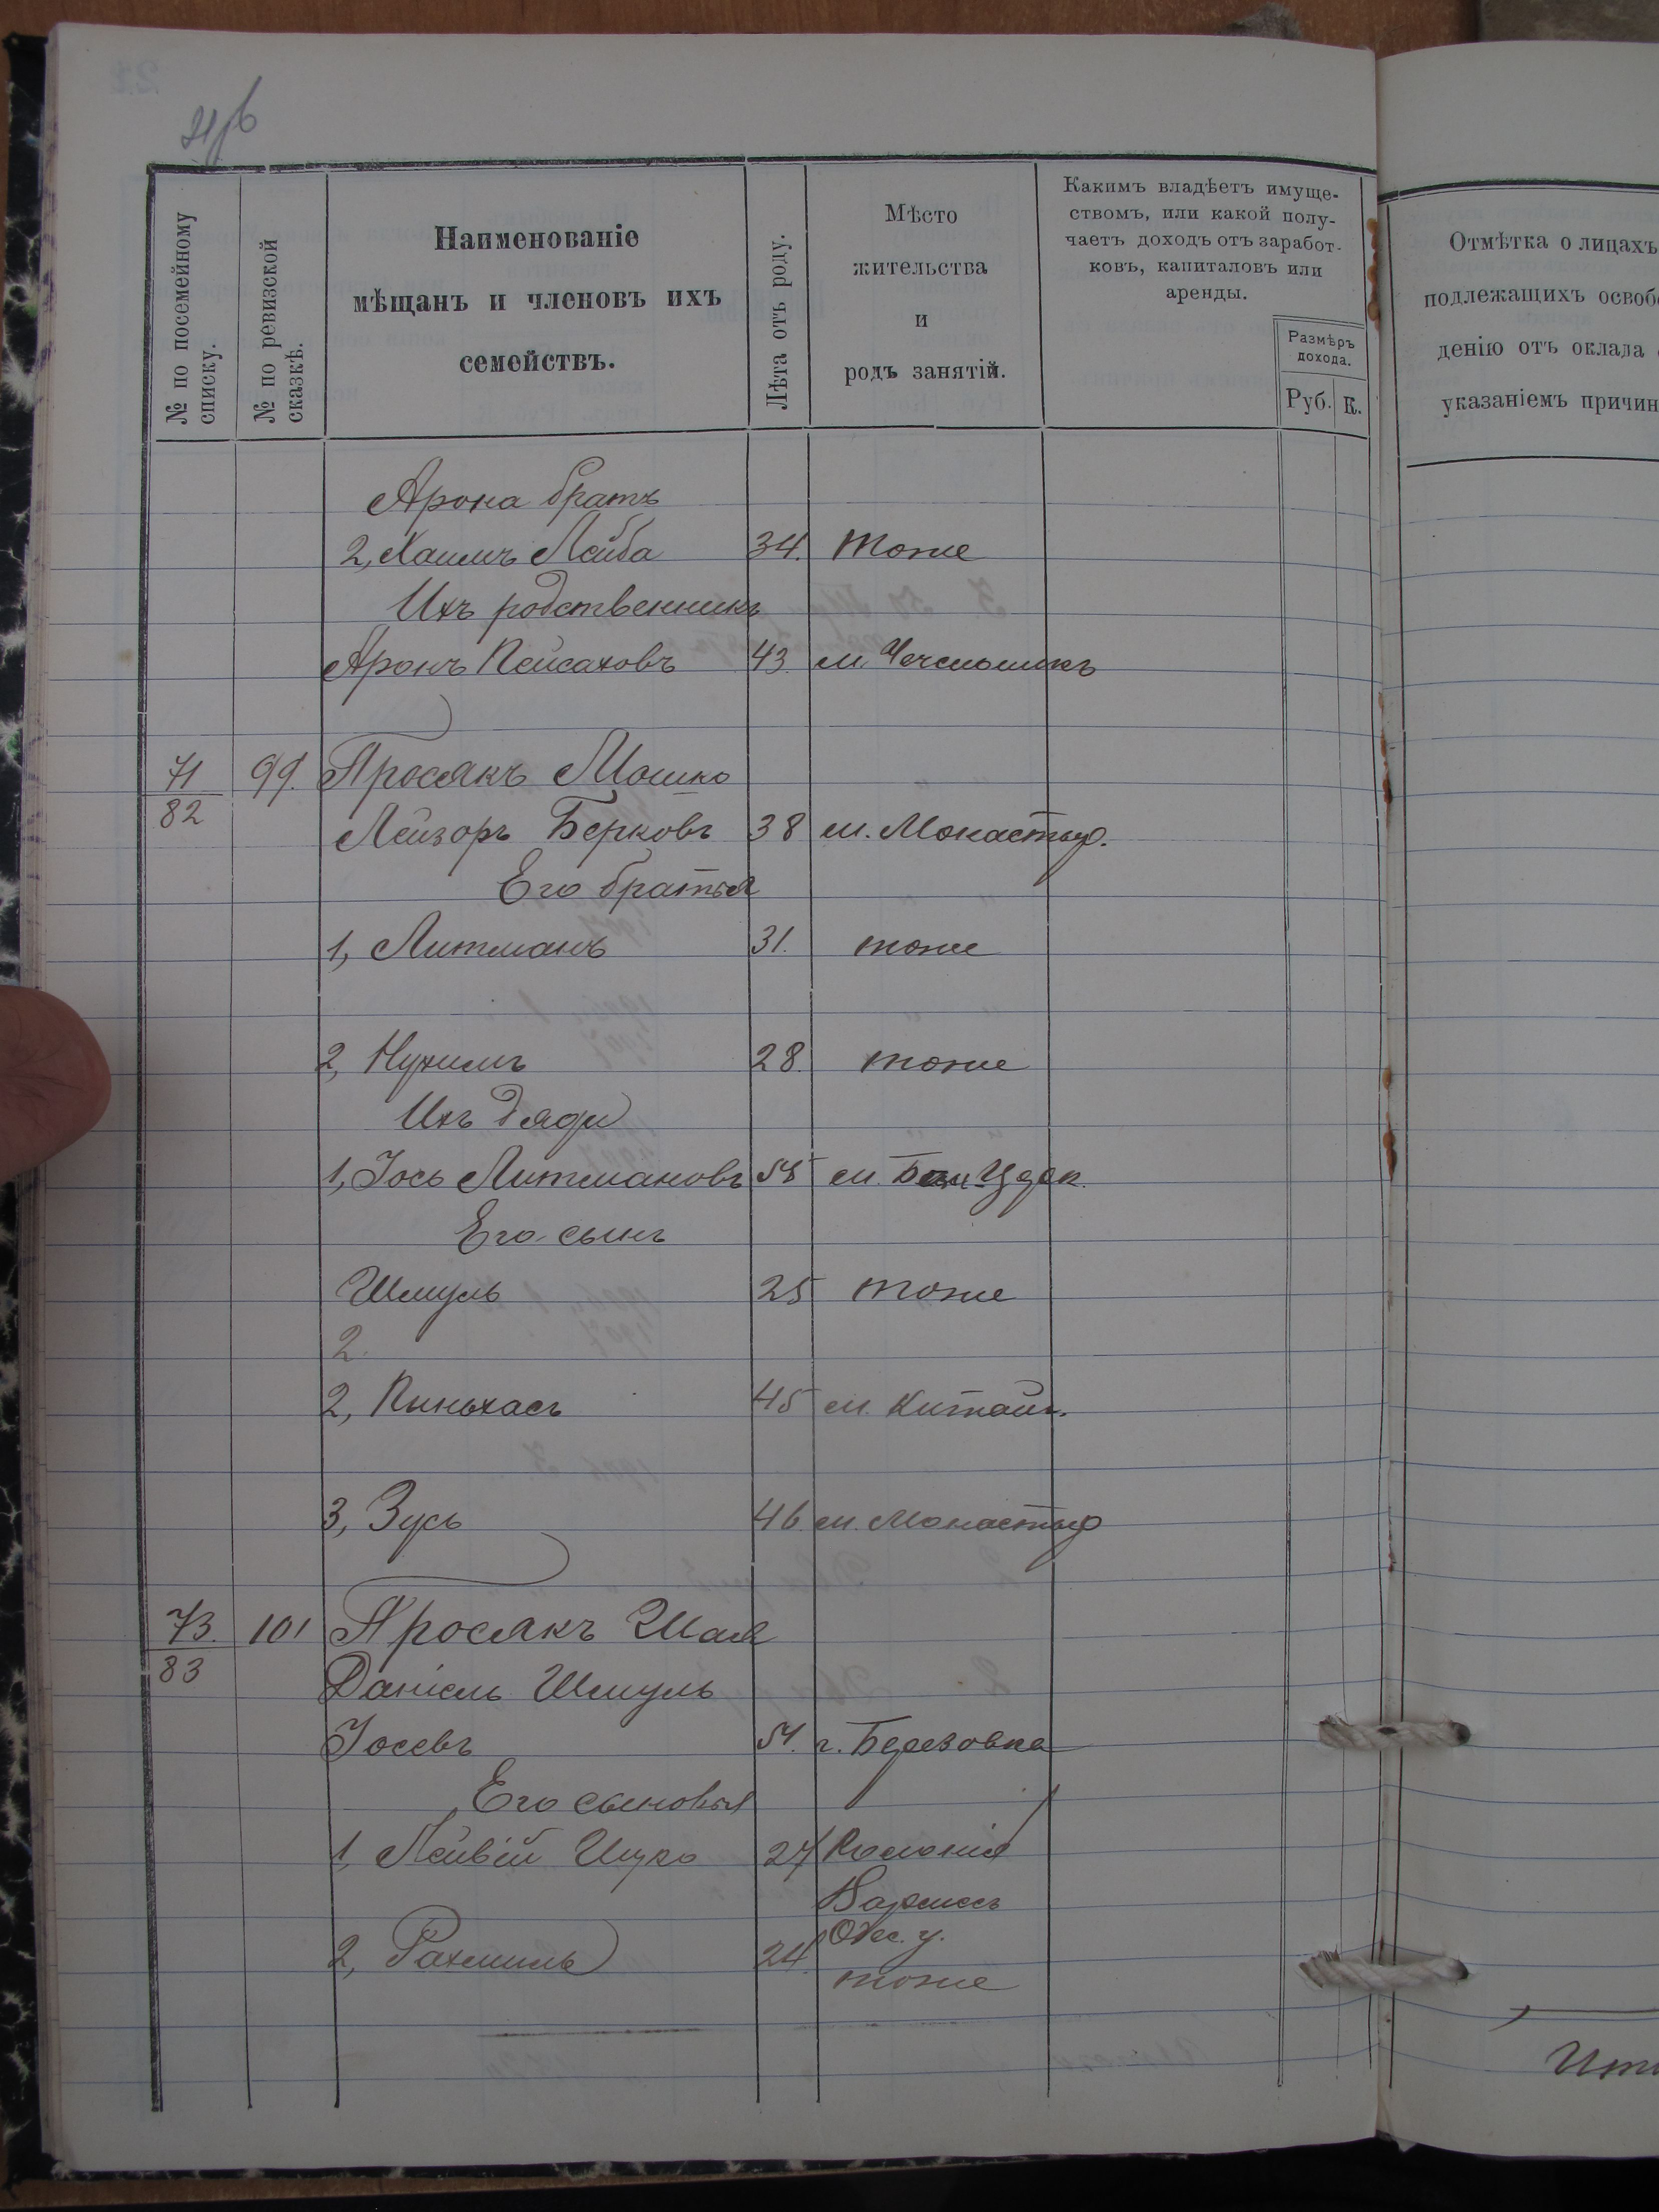 21/б
№ по посемейному списку.
№ по ревизской сказкѣ.
Наименованіе
мѣщанъ и членовъ ихъ
семействъ.
Лѣта отъ роду.
Мѣсто
жительства
и
родъ занятій.
Какимъ владѣетъ имуще-
ствомъ, или какой полу-
чаетъ доходъ отъ заработ-
ковъ, капиталовъ или
аренды.
Размѣръ
дохода.
Руб. К.
Отмѣтка о лицахъ
подлежащихъ освобо
денію отъ оклада
указаніемъ причин
Арона братъ
2, Хаимъ Лейба 34. тоже
Ихъ родственникъ
Аронъ Пейсаховъ 43. м.
71 99. Просякъ Мошко
82 Лейзоръ Берковъ 38 м. Монастыр.
Его братья
1, Литманъ 31. тоже
2, Нухимъ 28. тоже
Ихъ дяди
1, Іось Литмановъ м.
Его сынъ
Шмуль 25 тоже
2.
2, Пиньхасъ 45 м. Китайг.
3, Зусь 46 м. Монастыр
73. 101 Просякъ Шая
83 Даніель Шмуль
Іосевъ г. Березовка
Его сыновья
1, Лейвій Ицко 27 Колонія
Одес. у.
2, Рахмиль 24. тоже
Ито